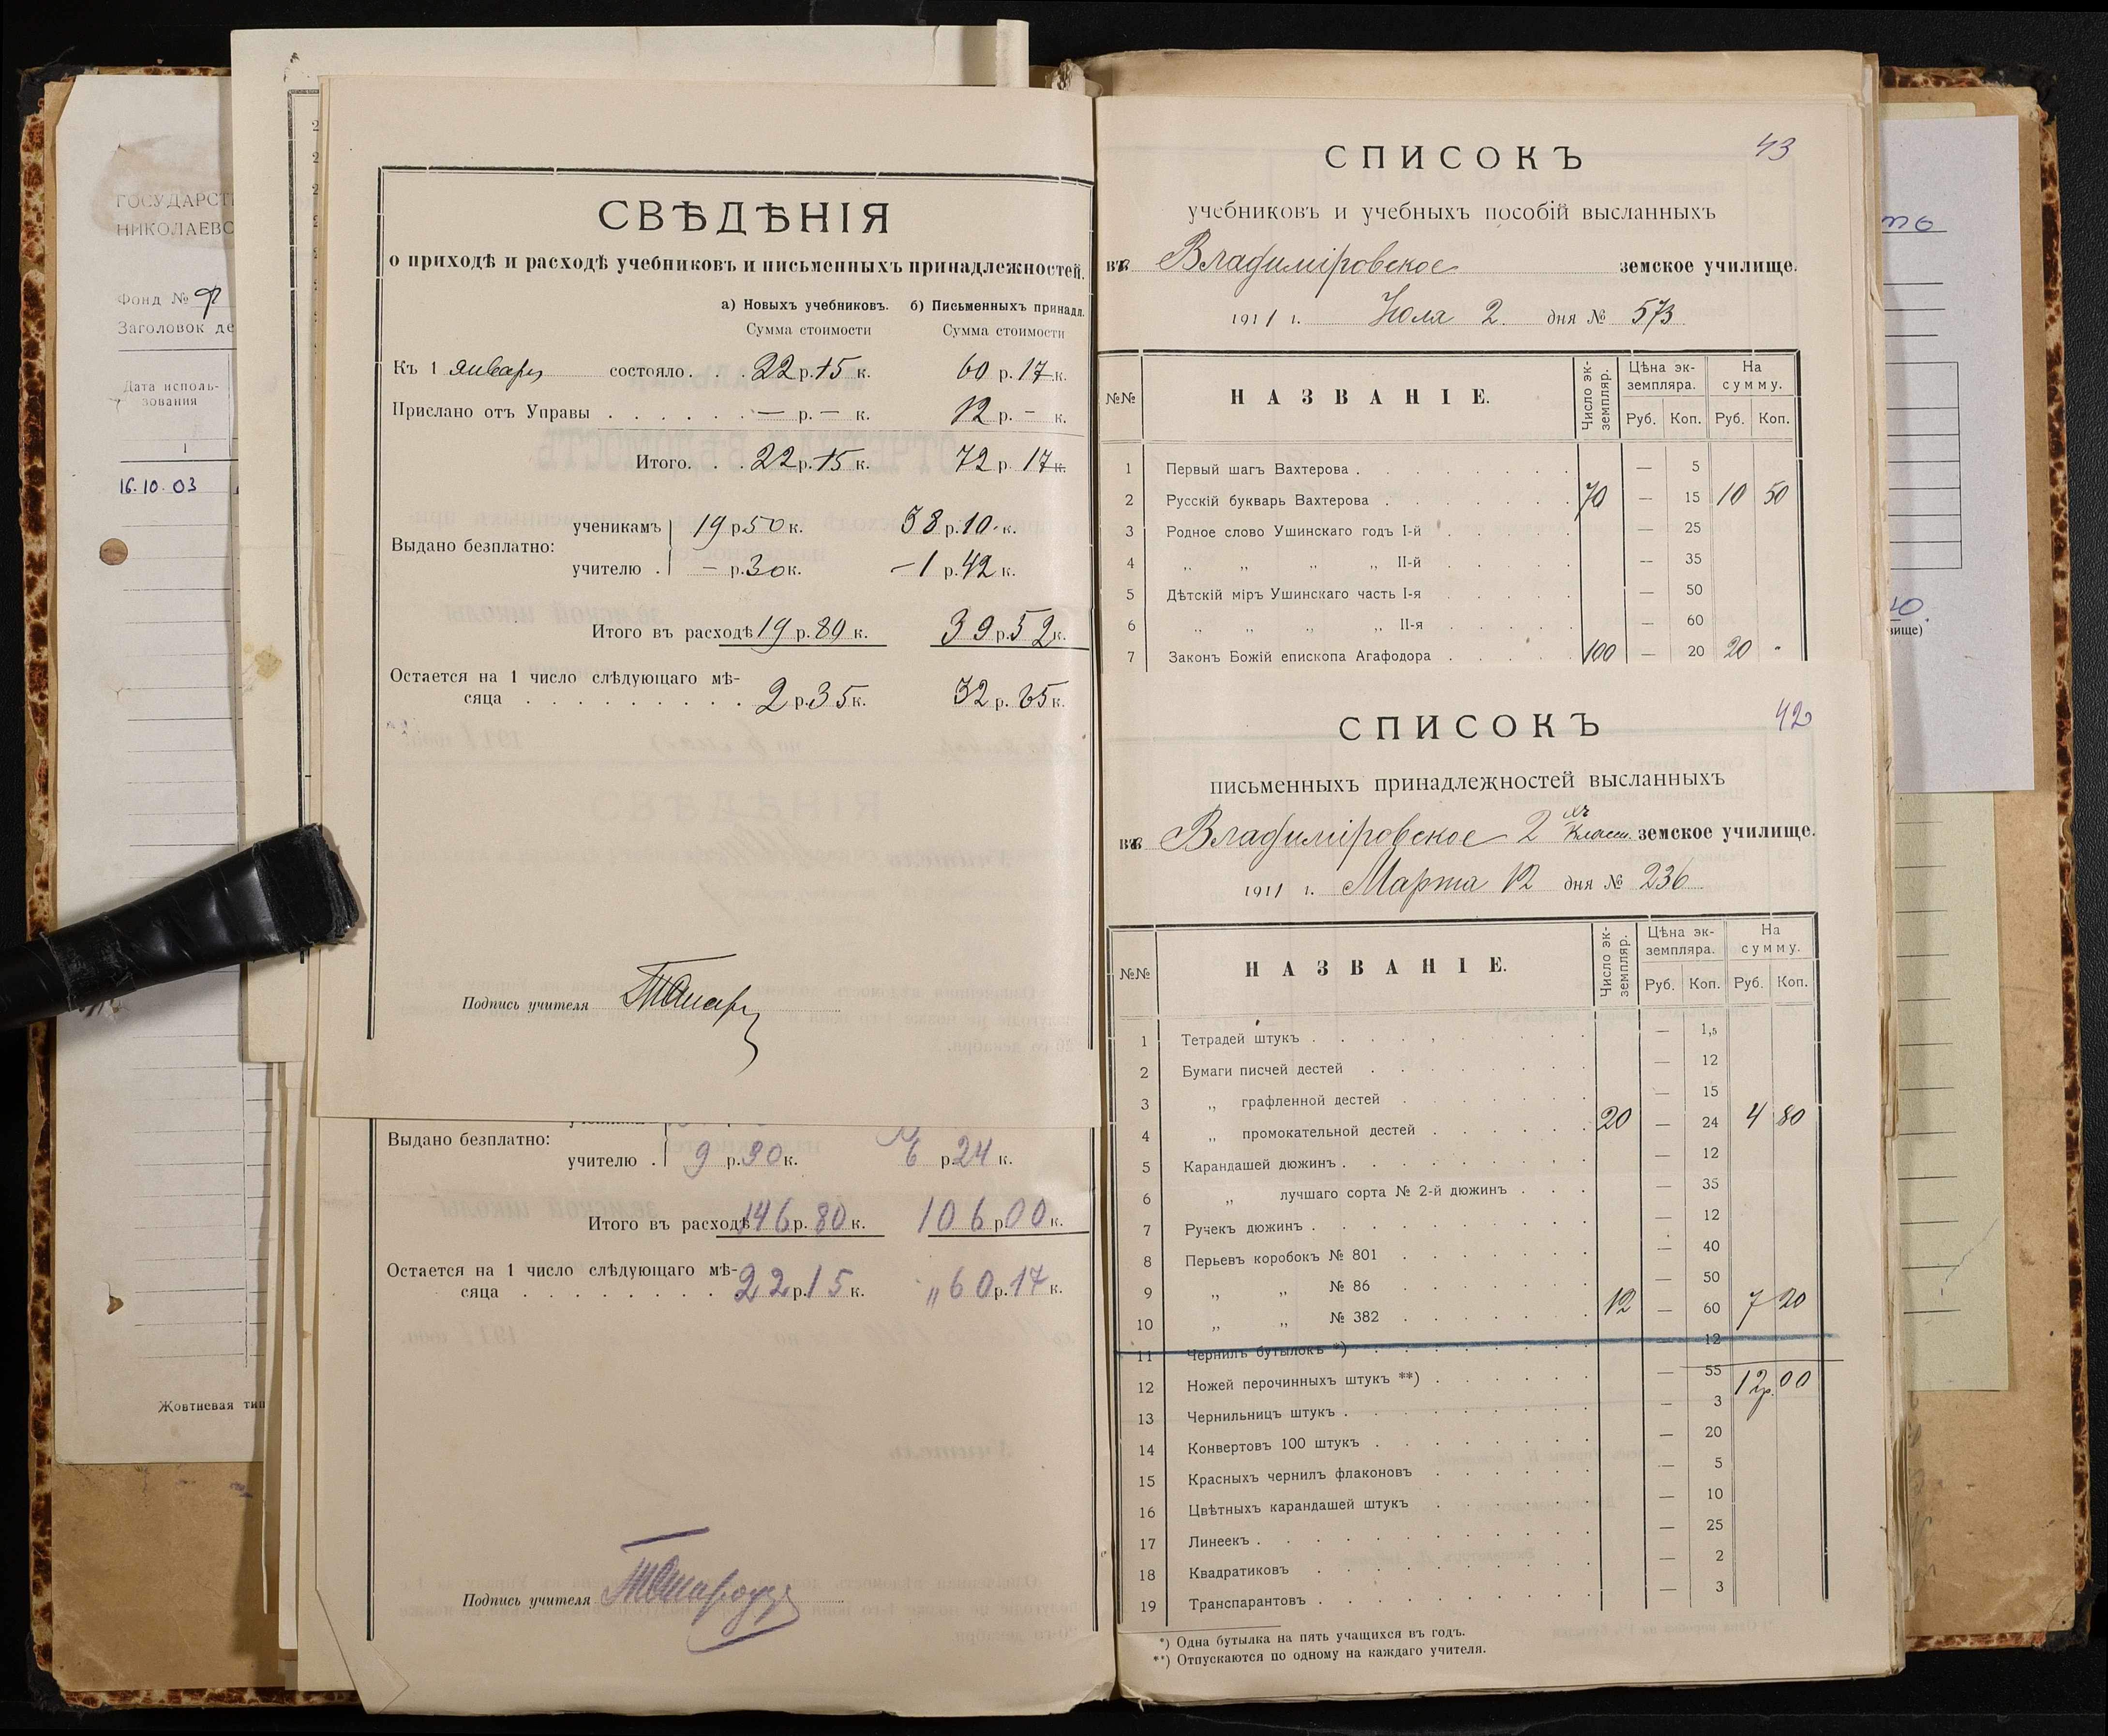 ГОСУДАРСТ
НИКОЛАЕВС
Фонд № Р
Заголовок де
Дата исполь-
зования
1
16.10.03
Жовтневая тип
СВѢДѢНІЯ
о приходѣ и расходѣ учебниковъ и письменныхъ принадлежностей.
а) Новыхъ учебниковъ. б) Письменныхъ принадл.
Сумма стоимости Сумма стоимости
Къ 1 январ состояло. . . 22 р. 15 к. 60 р. 17 к.
Прислано отъ Управы . . . . . . — р. — к. 12 р. – к.
Итого. . . 22 р. 15 к. 72 р. 17 к.
Выдано безплатно:
ученикамъ 19 р. 50 к. 38 р. 10 к.
учителю . – р. 30 к. – 1 р. 42 к.
Итого въ расходѣ 19 р. 80 к. 39 р. 52 к.
Остается на 1 число слѣдующаго мѣ-
сяца . . . . . . . . . 2 р. 35 к. 32 р. 65 к.
Подпись учителя
Выдано безплатно:
учителю . 9 р. 30 к. 6 р. 24 к.
Итого въ расходѣ 146 р. 80 к. 106 р. 00 к.
Остается на 1 число слѣдующаго мѣ-
сяца . . . . . . . . 22 р. 15 к. „ 60 р. 17 к.
Подпись учителя
43
СПИСОКЪ
учебниковъ и учебныхъ пособій высланныхъ
въ Владиміровское земское училище.
1911 г. Юля 2. дня № 573
№№ НАЗВАНІЕ. Число эк-земпляр. Цѣна эк-земпляра. На сумму.
Руб. Коп. Руб. Коп.
1 Первый шагъ Вахтерова . — 5
2 Русскій букварь Вахтерова . 70 — 15 10 50
3 Родное слово Ушинскаго годъ I-й . — 25
4 „ „ „ „ II-й . — 35
5 Дѣтскій міръ Ушинскаго часть I-я . — 50
6 „ „ „ „ II-я . — 60
7 Законъ Божій епископа Агафодора . 100 — 20 20 "
42
СПИСОКЪ
письменныхъ принадлежностей высланныхъ
въ Владиміровское 2 хъ класн. земское училище.
1911 г. Марта 12 дня № 236
№№ НАЗВАНІЕ. Число эк-земпляр. Цѣна эк-земпляра. На сумму.
Руб. Коп. Руб. Коп.
1 Тетрадей штукъ . — 1,5
2 Бумаги писчей дестей . — 12
3 „ графленной дестей . — 15
4 „ промокательной дестей . 20 — 24 4 80
5 Карандашей дюжинъ . — 12
6 „ лучшаго сорта № 2-й дюжинъ . — 35
7 Ручекъ дюжинъ . — 12
8 Перьевъ коробокъ № 801 . — 40
9 „ „ № 86 . — 50
10 „ „ № 382 . 12 — 60 7 20
11 Чернилъ бутылокъ *) . — 12
12 Ножей перочинныхъ штукъ **) . — 55 12р. 00
13 Чернильницъ штукъ . — 3
14 Конвертовъ 100 штукъ . — 20
15 Красныхъ чернилъ флаконовъ . — 5
16 Цвѣтныхъ карандашей штукъ . — 10
17 Линеекъ . — 25
18 Квадратиковъ . — 2
19 Транспарантовъ . — 3
*) Одна бутылка на пять учащихся въ годъ.
**) Отпускаются по одному на каждаго учителя.